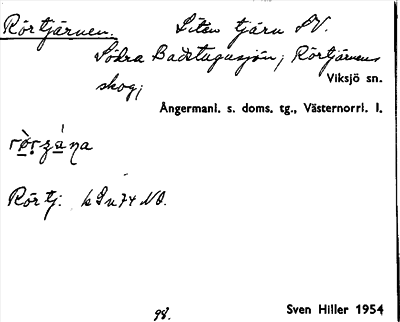 Rörtjärnen. Liten tjärn SV.
Södra Badstugusjön; Rörtjärnens
skog;
Viksjö sn.
Ångermanl. s. doms. tg., Västernorrl. l.
Rörtj: k 9 u 74 NO.
98.
Sven Hiller 1954